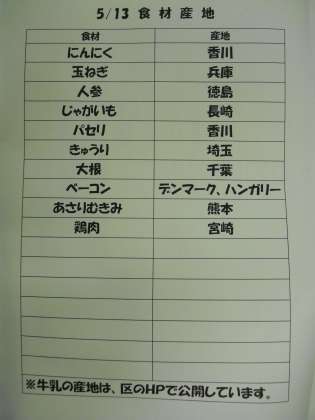 5/13 食材産地
食材 産地
にんにく 香川
玉ねぎ 兵庫
人参 徳島
じゃがいも 長崎
パセリ 香川
きゅうり 埼玉
大根 千葉
ベーコン デンマーク、ハンガリー
あさりむきみ 熊本
鶏肉 宮崎
※牛乳の産地は、区のHPで公開しています。